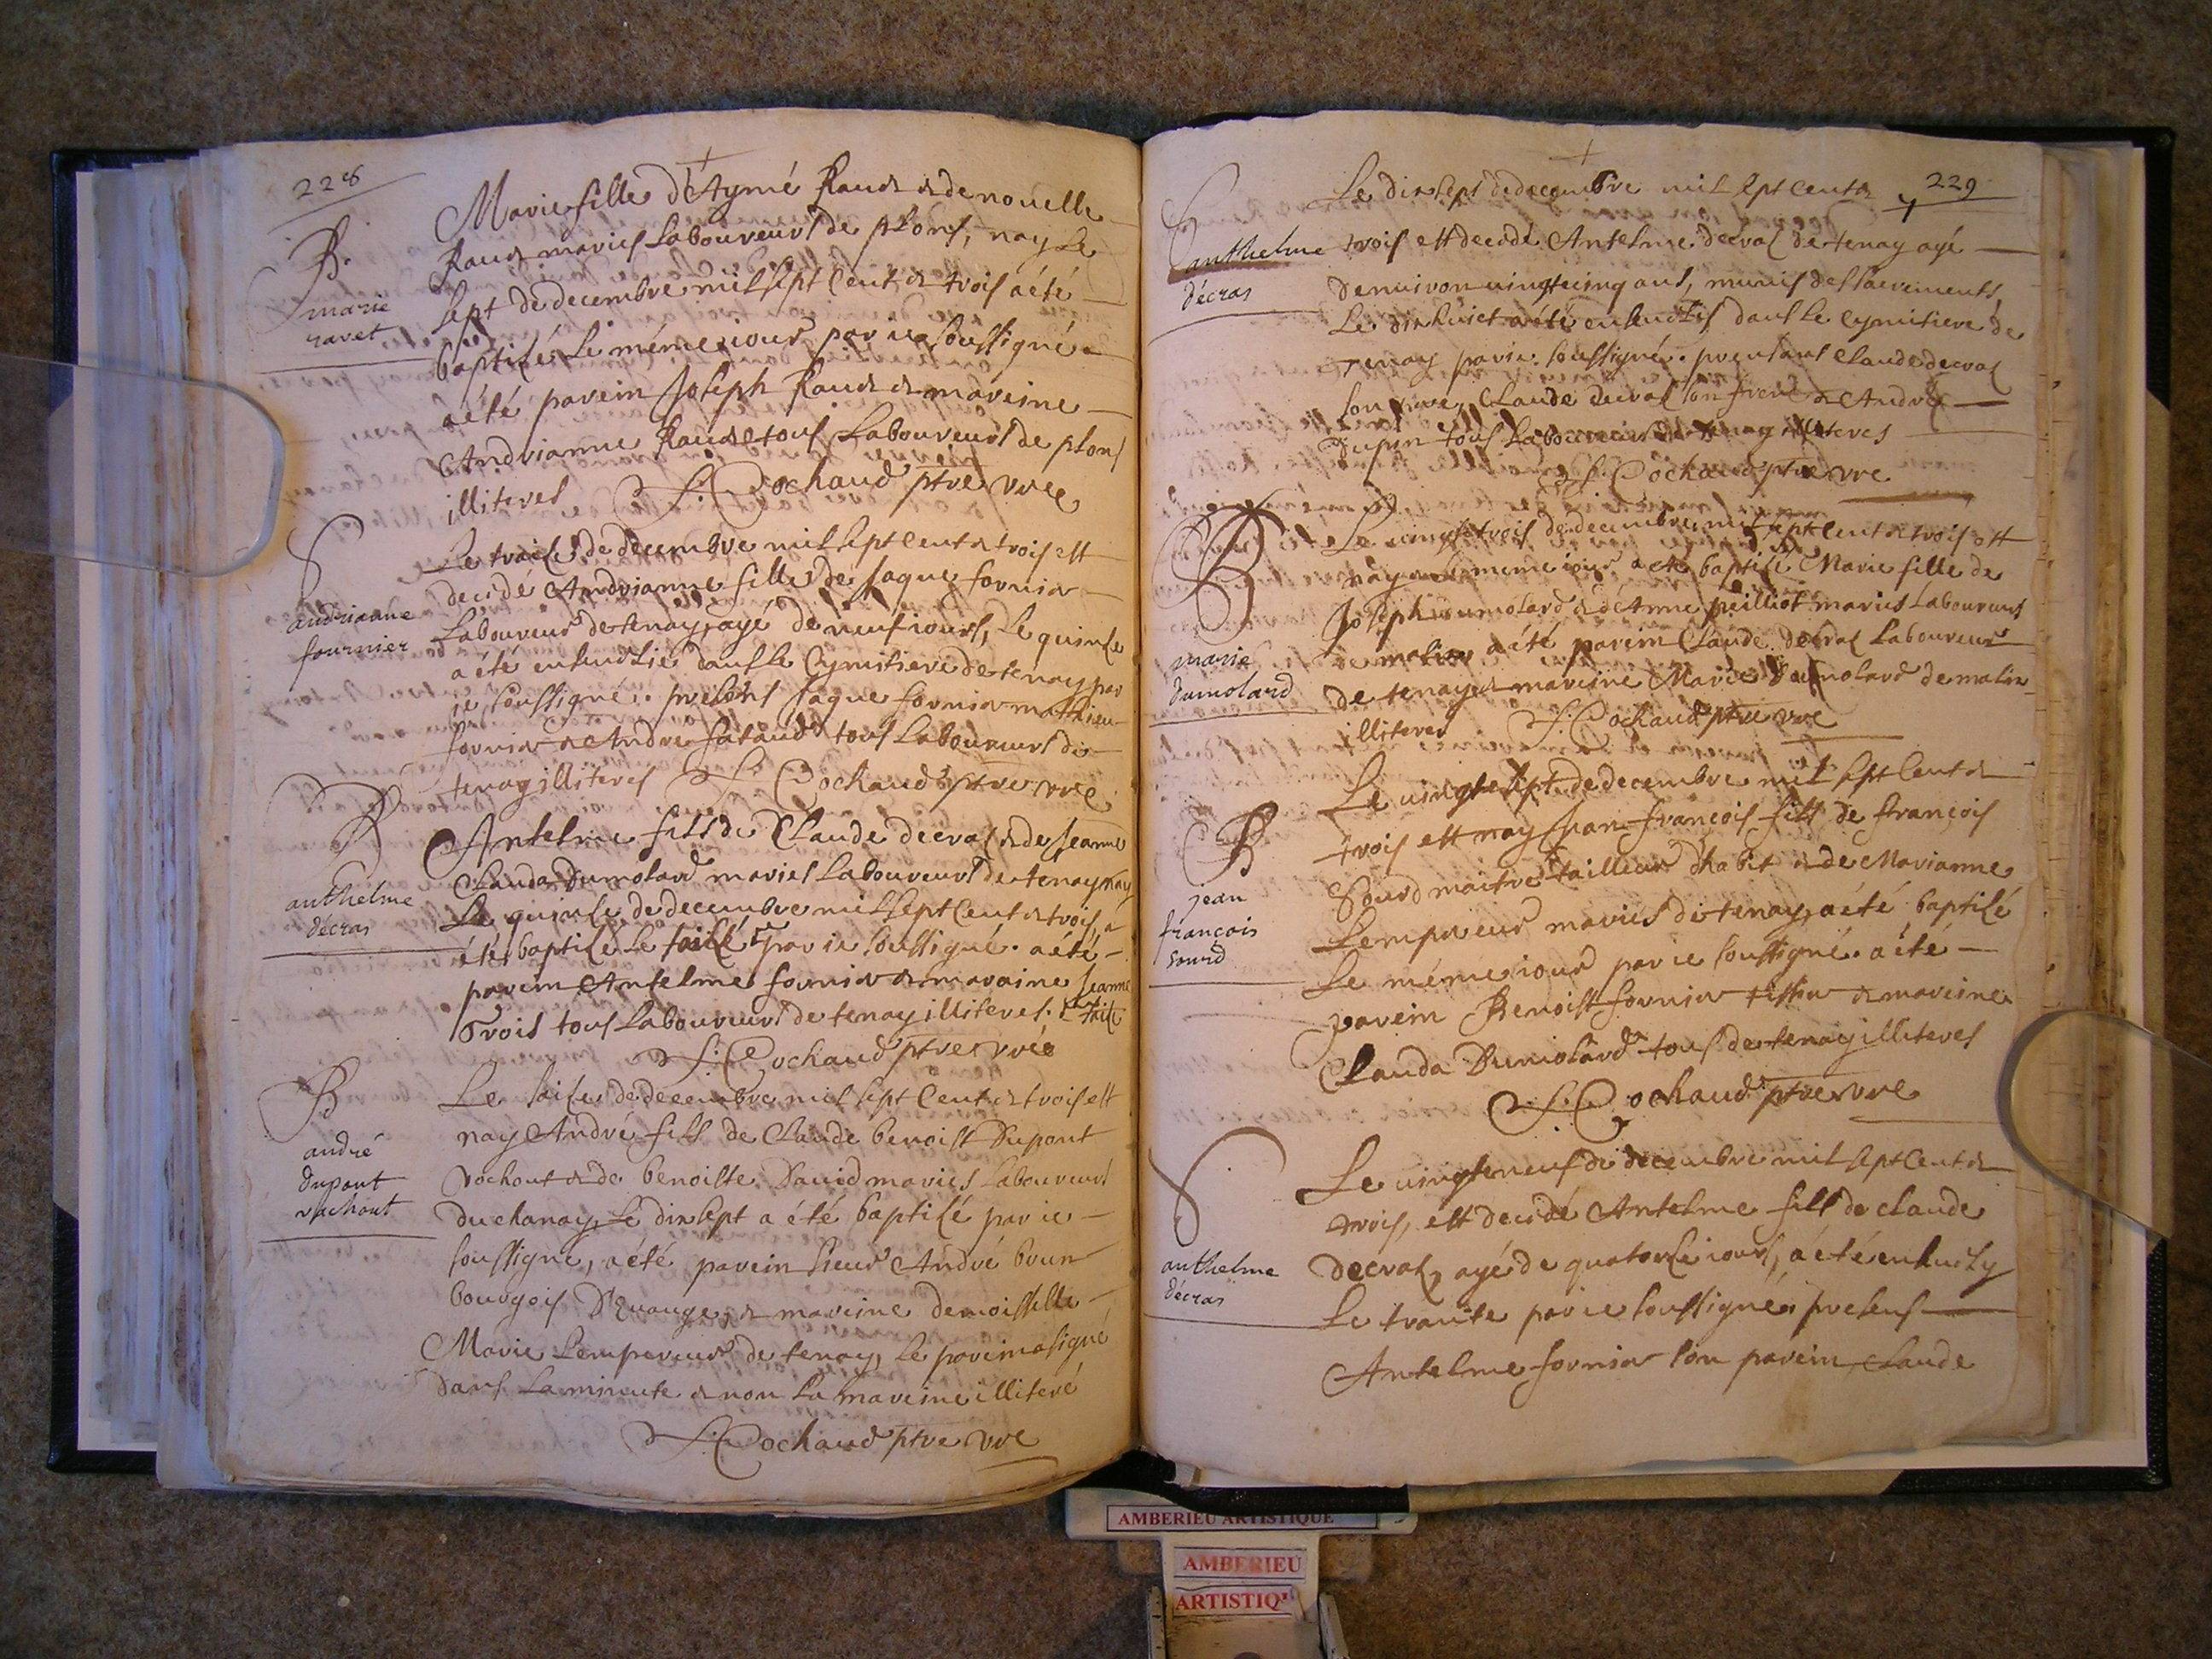 228
B.
marie
ravet
Marie fille d'Aymé Raude & de nouelle
Raude mariés Laboureurs de plons, nay Le
sept de decembre mil sept Cent & trois a été
baptisée Le méme iour par ie soussigné
a été parein Joseph Raude & mareine
Andrianne Raude tous Laboureurs de plons
illiteres J: Cochaud ptre vre
S
andrianne
fournier
Le traise de decembre mil sept cent & trois est
decedé Andrianne fille de Jaque fornier
Laboureur de tenay, agé de neuf iours, Le quinse
a été enseuelie dans le Cymitiere de tenay par
ie soussigné. présens Jaque fornier mathieu
fornier & André sataud tous Laboureurs de
tenay illiteres J: Cochaud ptre vre
B
anthelme
décras
Antelme fils de Claude decras & de Jeanne
Clauda Dumolard mariés Laboureurs de tenay nay
Le quinse de decembre mil sept Cent & trois, a
été baptisé Le saisé par ie soussigné. a été
parein Antelme fornier & maraine Jeanne
Trois tous Laboureurs de tenay illiteres. saise
J: Cochaud ptre vre
B
andré
dupont
rachout
Le saise de decembre mil sept Cent & trois est
nay André fils de Claude benoist Dupont
rochout & de benoiste Dauid mariés Laboureurs
du chanay, Le dixsept a été baptisé par ie
soussigné, a été parein sieur André brun
bourgois d'Euange, & mareine demoiselle
Marie Lempereur de tenay, Le parein a signé
dans La minute & non La mareine illiteré
J: Cochaud ptre vre
229
S
anthelme
décras
Le dixsept de decembre mil sept cent &
trois est decedé Antelme decras de tenay agé
denuiron uingtcinq ans, munis des sacrements,
Le dixhuict a été enseuelis dans Le Cymitiere de
Tenay par ie soussigné. presens Claude decras
son pere, Claude decras son frere & André
Dupin tous Laboureurs de tenay illiteres
J: Cochaud ptre vre
B
marie
dumolard
Le uingtetrois de decembre mil sept Cent & trois est
nay & le meme iour a été baptisé Marie fille de
Joseph dumolard & d'Anne peilliot mariés Laboureurs
de malix a été parein Claude decras Laboureur
de tenay & mareine Marie Dumolard de malix
illiteres J: Cochaud ptre vre
B
jean
françois
sourd
Le uingtesept de decembre mil sept Cent &
trois est nay Jean françois fils de françois
Sourd maitre tailleur d'habit & de Marianne
Lempereur mariés de tenay, a été baptisé
Le méme iour par ie soussigné. a été
parein Benoist fornier tissier & mareine
Clauda Dumolard tous de tenay illiteres
J: Cochaud ptre vre
S
anthelme
décras
Le uingteneuf de decembre mil sept Cent &
trois, est decedé Antelme fils de claude
decras, agé de quatorse iours, a été enseuely
Le trante par ie soussigné. presens
Antelme fornier son parein, Claude
AMBERIEU ARTISTIQUE
AMBERIEU
ARTISTIQ